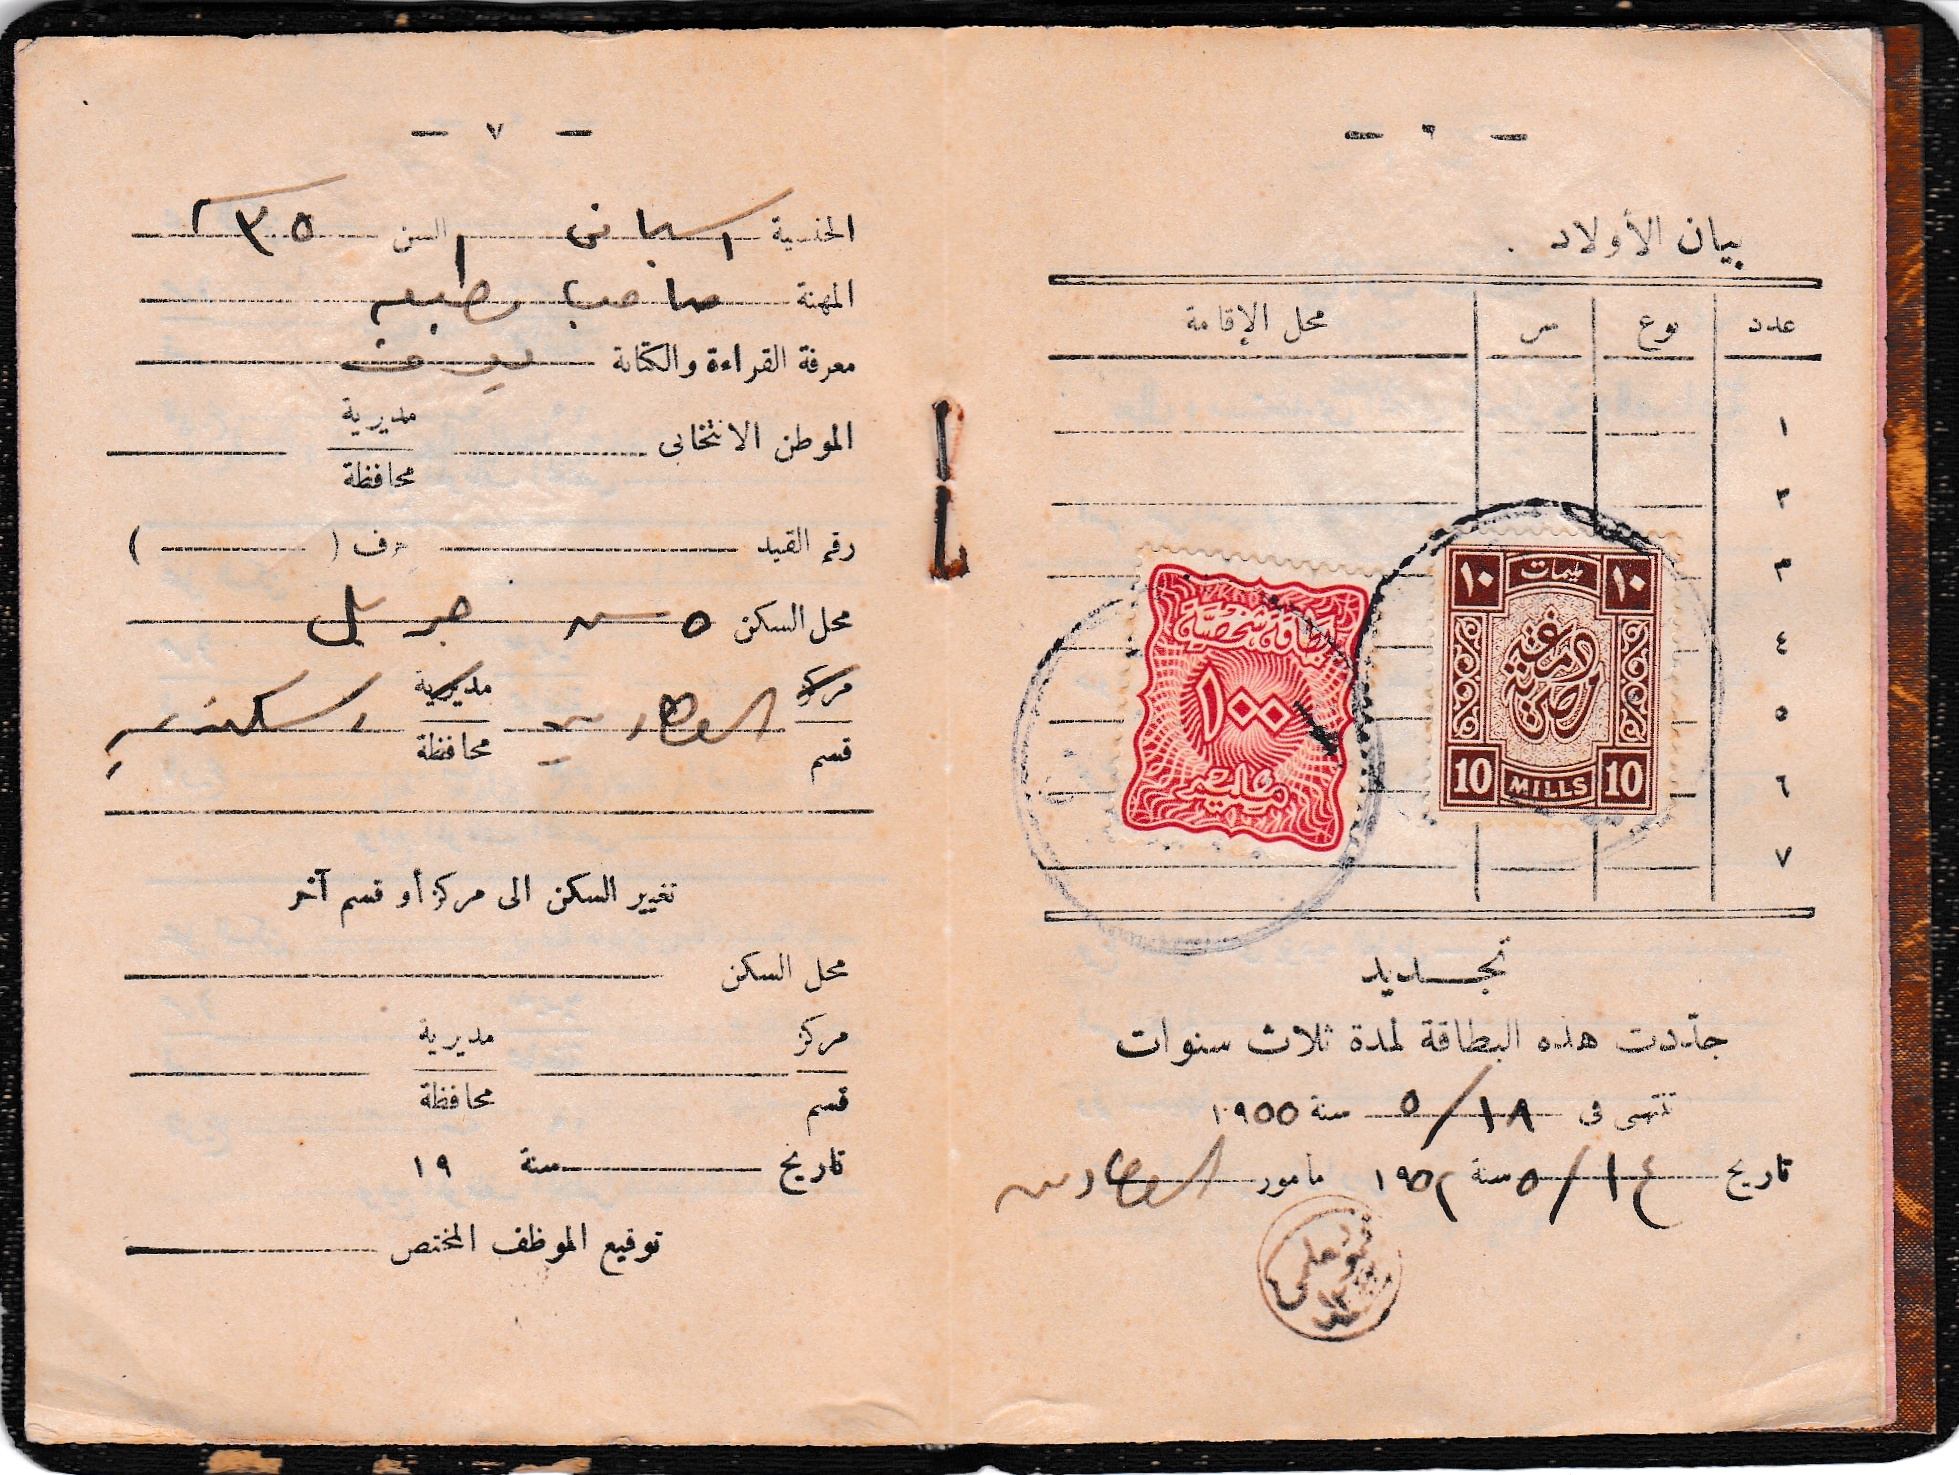 — ٦ —
بيان الأولاد .
عدد نوع سن محل الإقامة
١
٢
٣
٤
٥
٦
٧
١٠ مليمات ١٠
دمغة
10 MILLS 10
بطاقة شخصية
١٠٠
مليم
تجديد
جدّدت هذه البطاقة لمدة ثلاث سنوات
تنتهى فى ١٨/٥ سنة ١٩٥٥
تاريخ ١٤/٥ سنة ١٩٥٢ مأمور العطارين
— ٧ —
الجنسية اسبانى السن ٣٥
المهنة صاحب مطبعه
معرفة القراءة والكتابة يعرف
الموطن الانتخابى مديرية
محافظة
رقم القيد حرف ( )
محل السكن ٥ ش جبريل
مركز مديرية
العطارين اسكندريه
قسم محافظة
تغيير السكن الى مركز أو قسم آخر
محل السكن
مركز مديرية
قسم محافظة
تاريخ سنة ١٩
توقيع الموظف المختص